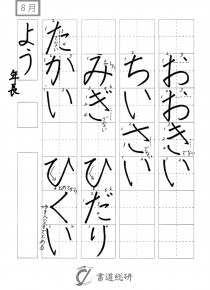 おおきい
ちいさい
みぎ ひだり
たかい ひくい
8月
よう
年長
書道総研